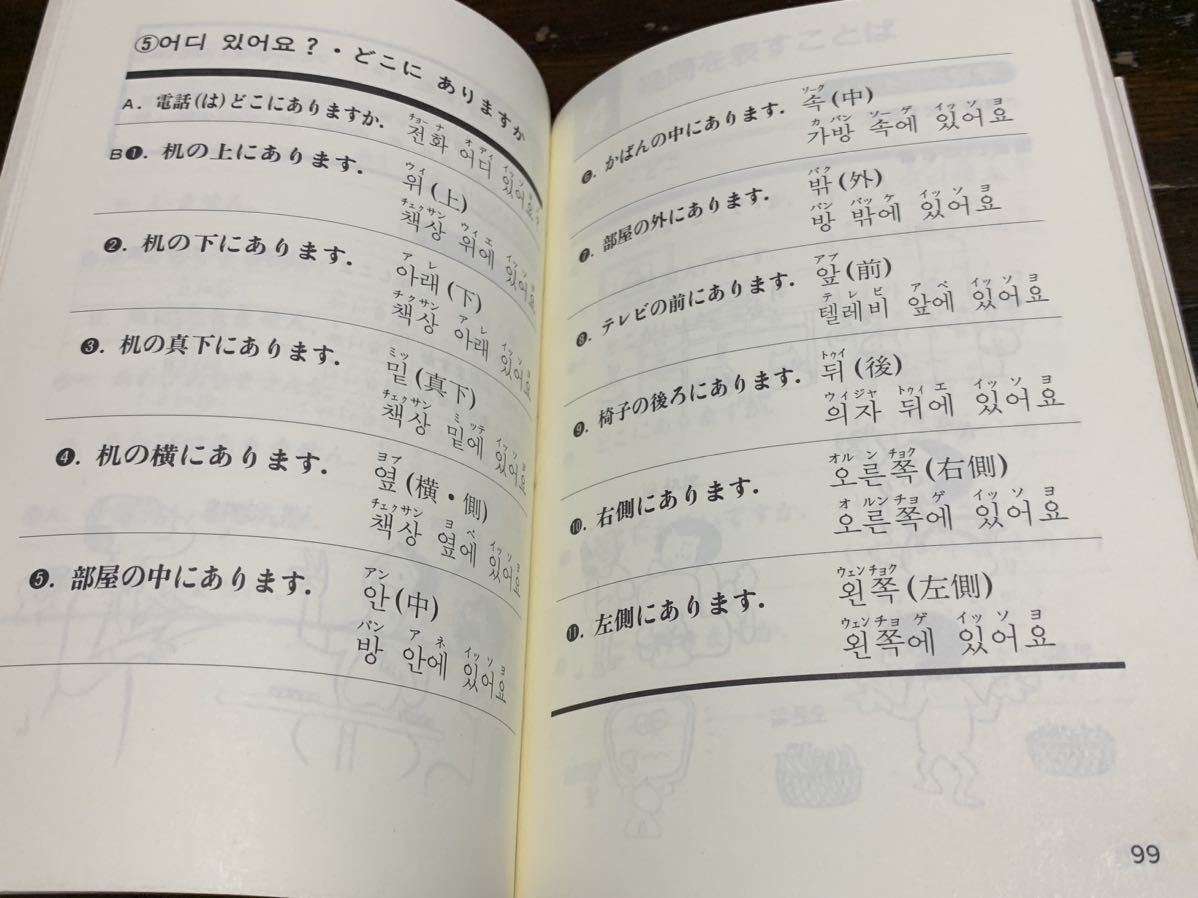 ⑤어디 있어요?・どこに ありますか
A. 電話(は)どこにありますか.
チョーナ オディ イッソヨ
전화 어디 있어요?
B❶. 机の上にあります.
ウィ
위(上)
チェクサン ウィエ イッソヨ
책상 위에 있어요
❷. 机の下にあります.
アレ
아래(下)
チクサン アレ イッソヨ
책상 아래 있어요
❸. 机の真下にあります.
ミッ
밑(真下)
チェクサン ミッテ イッソヨ
책상 밑에 있어요
❹. 机の横にあります.
ヨプ
옆(横・側)
チェクサン ヨベ イッソヨ
책상 옆에 있어요
❺. 部屋の中にあります.
アン
안(中)
バン アネ イッソヨ
방 안에 있어요
❻. かばんの中にあります.
ソーク
속(中)
カバン ソーゲ イッソヨ
가방 속에 있어요
❼. 部屋の外にあります.
バク
밖(外)
バン バッケ イッソヨ
방 밖에 있어요
❽. テレビの前にあります.
アプ
앞(前)
テレビ アペ イッソヨ
텔레비 앞에 있어요
❾. 椅子の後ろにあります.
トゥイ
뒤(後)
ウィジャ トゥイエ イッソヨ
의자 뒤에 있어요
❿. 右側にあります.
オルンチョク
오른쪽(右側)
オルンチョゲ イッソヨ
오른쪽에 있어요
⓫. 左側にあります.
ウェンチョク
왼쪽(左側)
ウェンチョゲ イッソヨ
왼쪽에 있어요
99